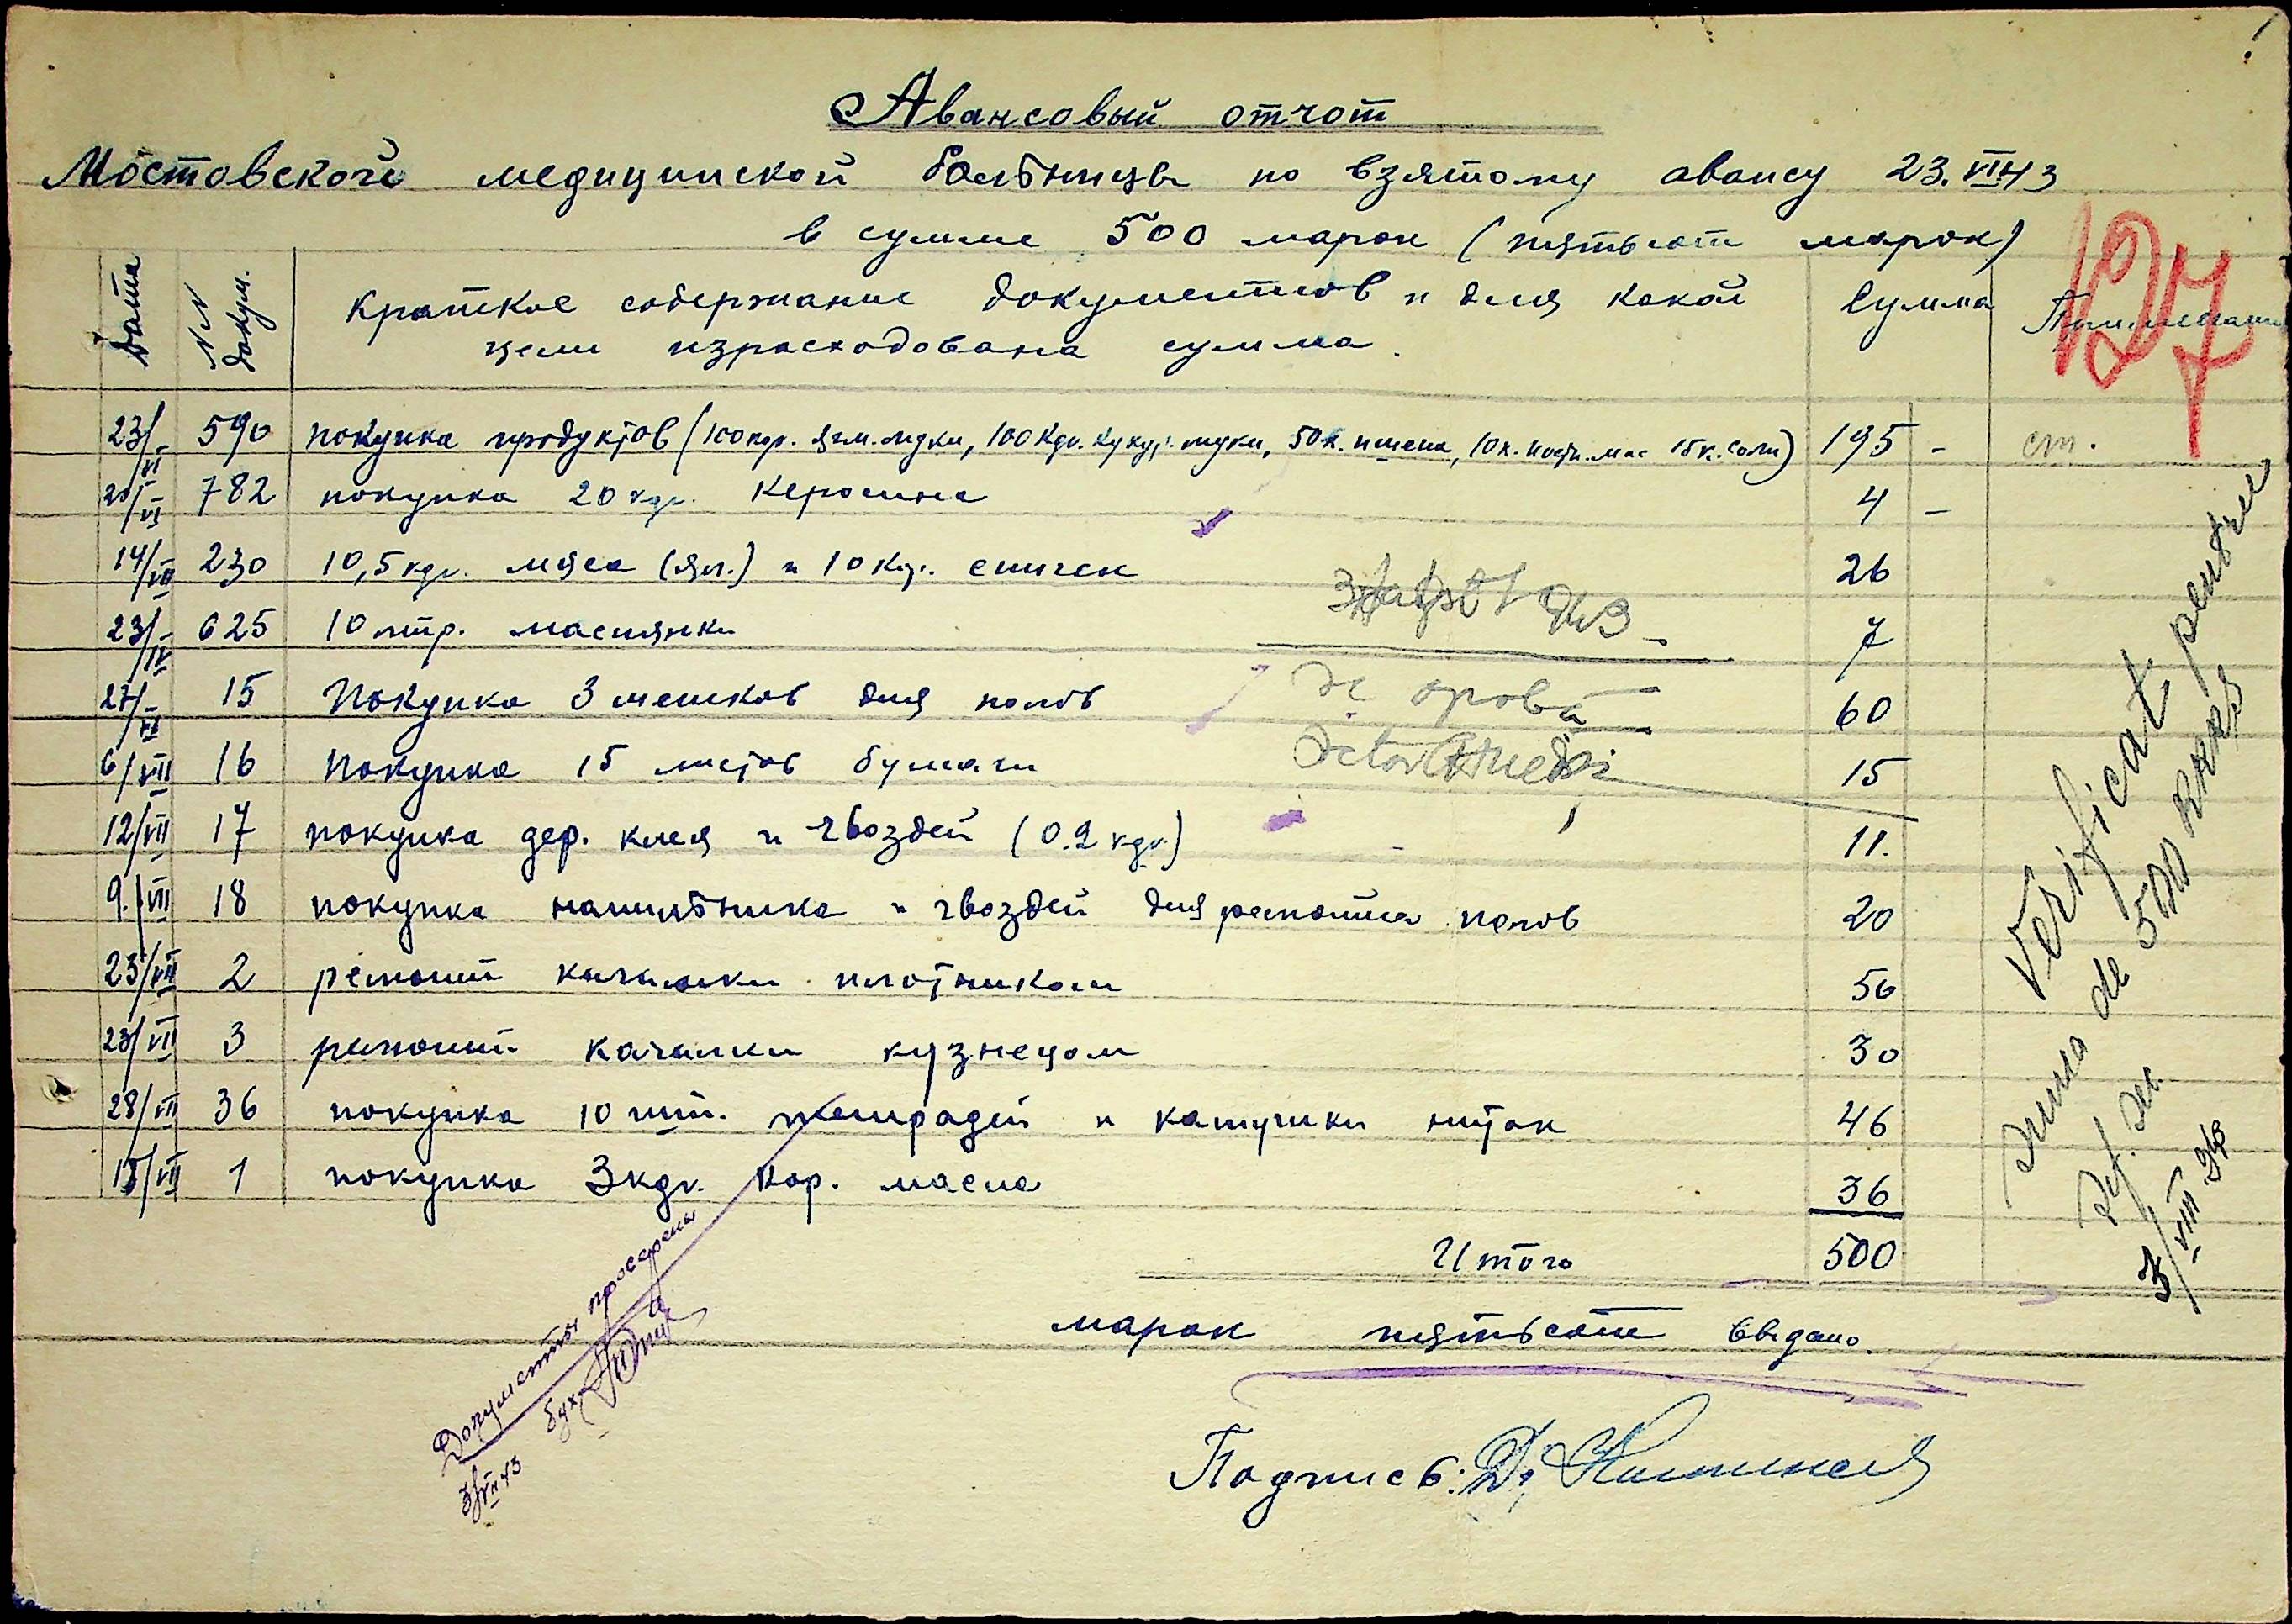 Авансовый отчот
Мостовской медицинской больницы по взятому авансу 23.VI 43
в сумме 500 марок (пятьсот марок)
Дата NN докум. Краткое содержание документов и для какой Сумма Примечание
цели израсходована сумма.
127
23/VI 590 покупка продуктов (100 кгр. ячм. муки, 100 кгр. кукур. муки, 50 к. пшена, 10 к. постн. мас 15 к. соли) 195 - ст.
20/VI 782 покупка 20 кгр. керосина 4 -
14/VII 230 10,5 кгр. мяса (ял.) и 10 кор. спичек 26
23/ 625 10 лтр. маслянки 7
27/ 15 Покупка 3 мешков для полов 60
6/VII 16 Покупка 15 листов бумаги 15
12/VII 17 покупка дер. клея и гвоздей (0.2 кгр.) 11.
9./VII 18 покупка напильника и гвоздей для ремонта полов 20
23/VII 2 ремонт качалки плотником 50
23/VII 3 ремонт качалки кузнецом 30
28/VII 36 покупка 10 шт. тетрадей и катушки ниток 46
15/VII 1 покупка 3 кгр. кор. масла 36
Итого 500
марок пятьсот выдано.
Подпись: Др
Документы проверены
бух.
Verificat pentru
suma de 500 RKKS
VIII